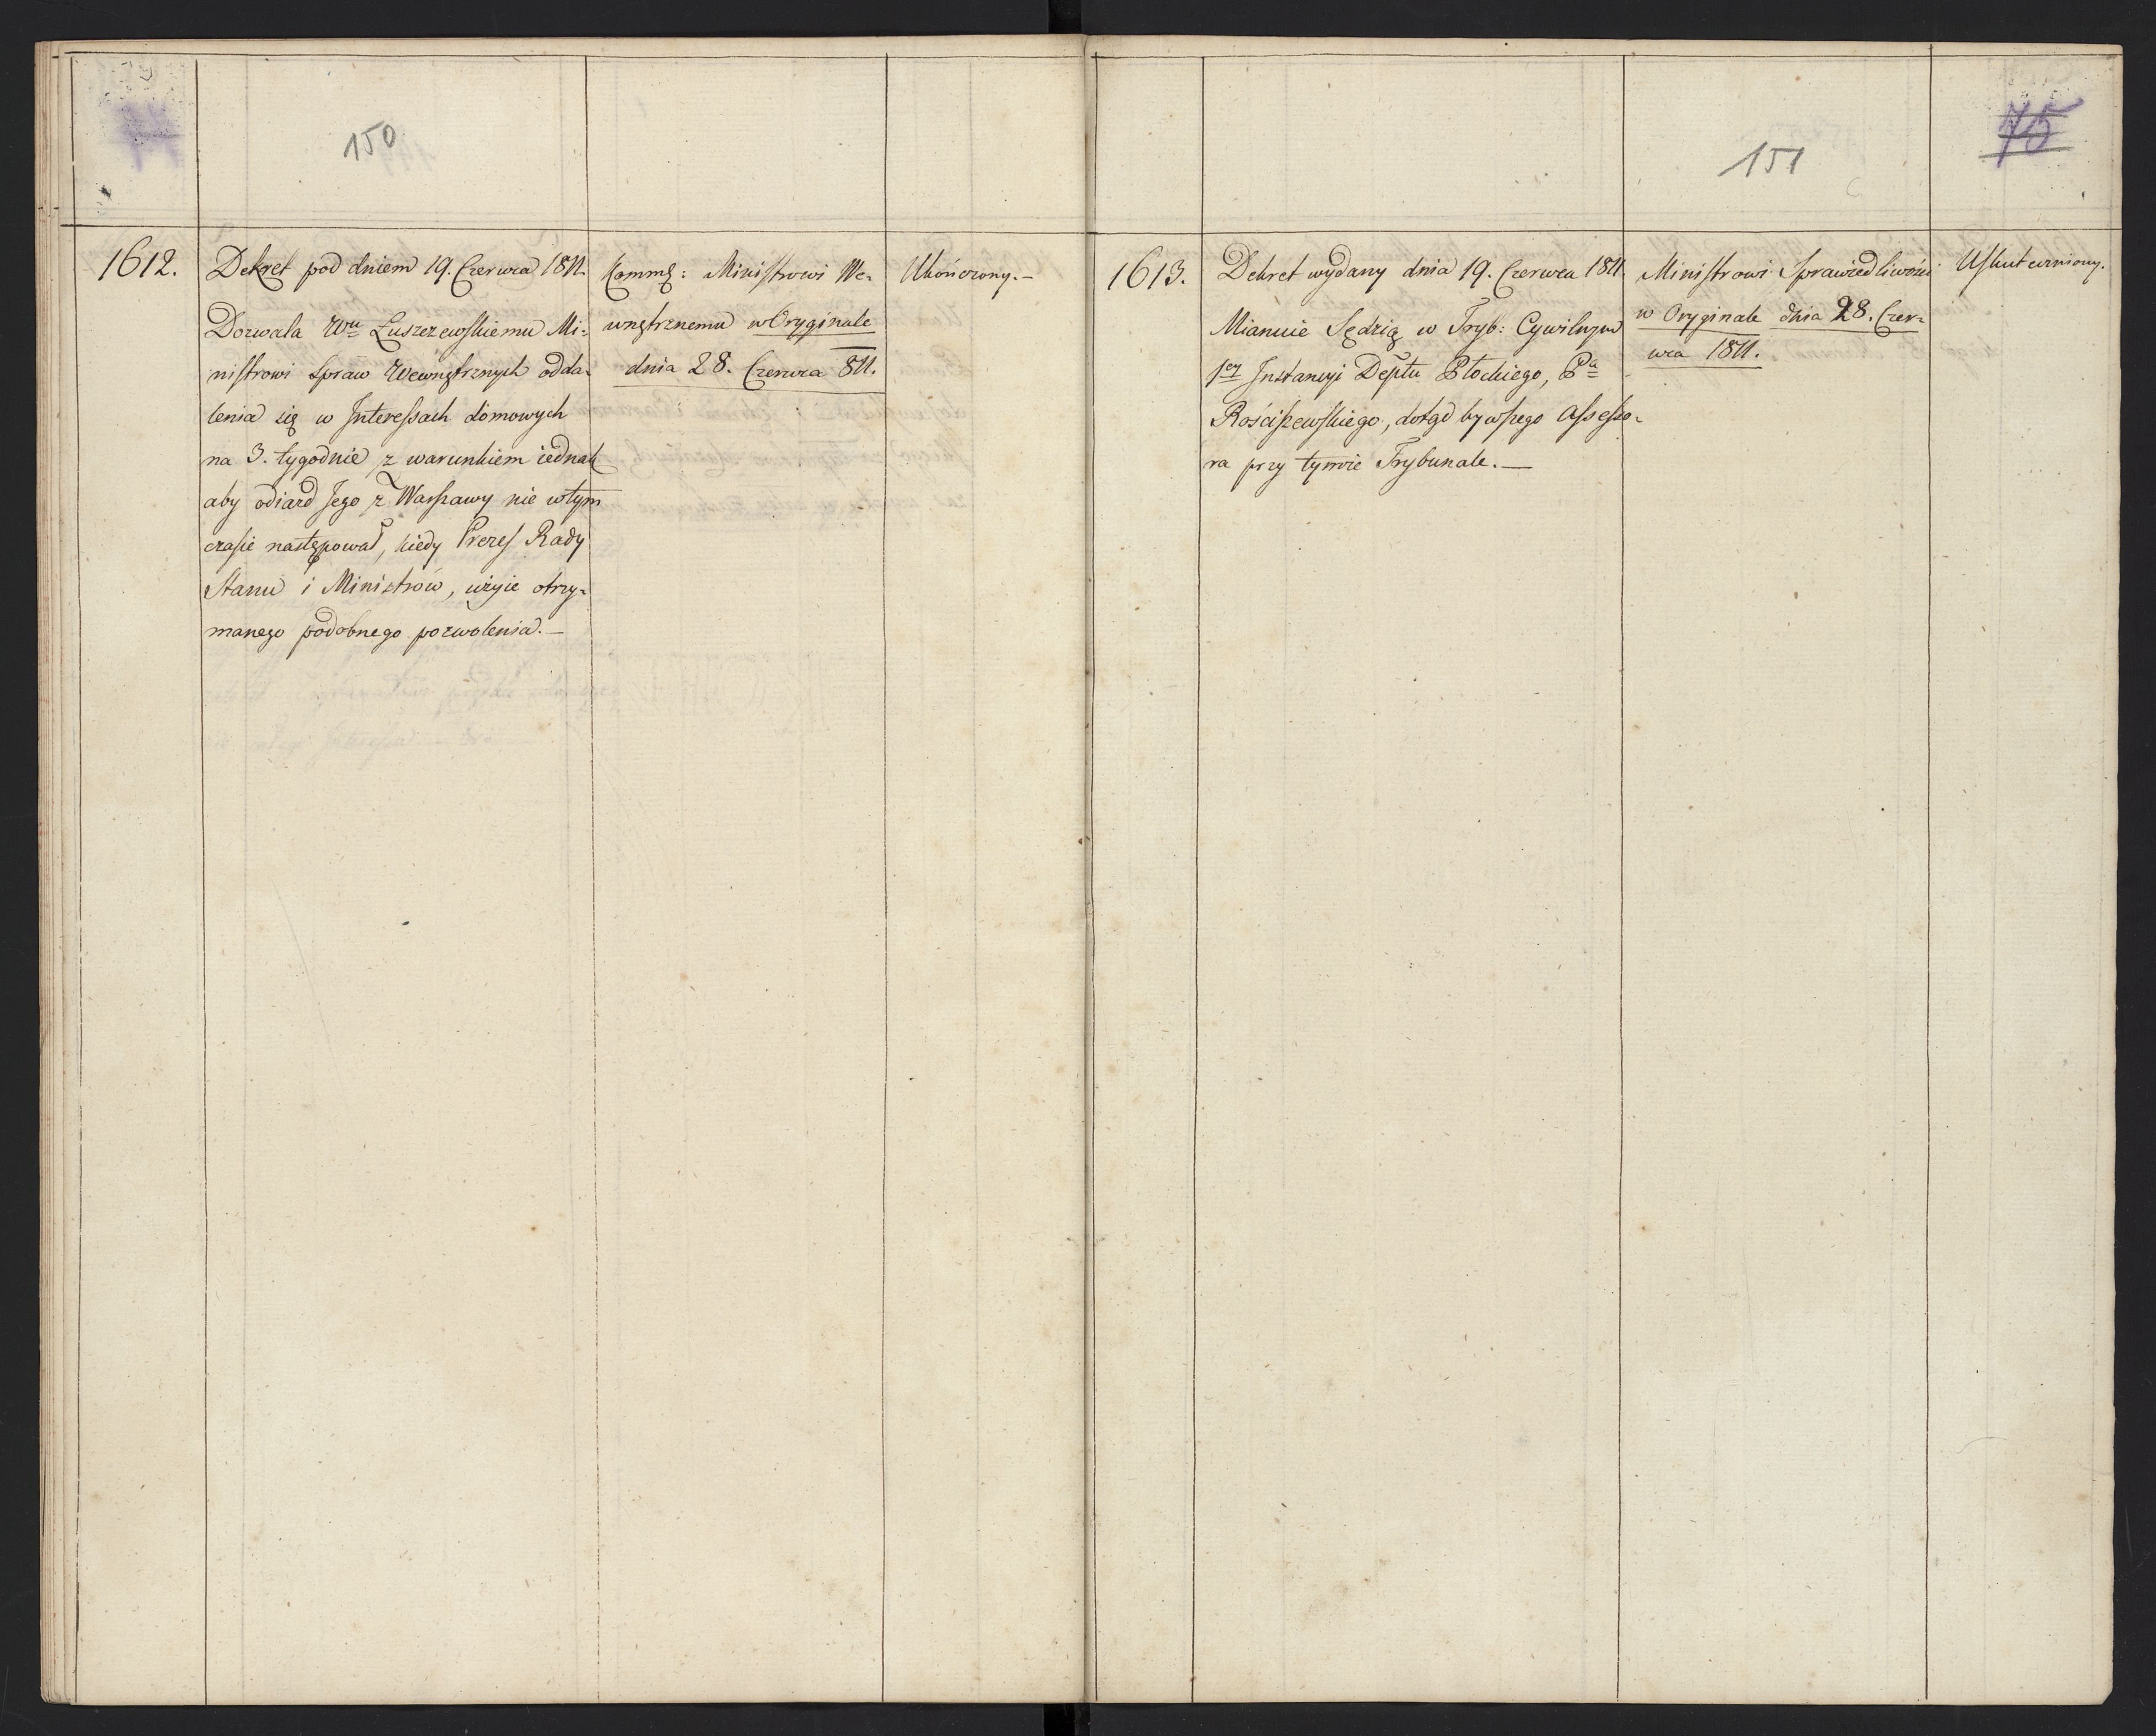 150
1612.
Dekret pod dniem 19. Czerwca 1811.
Dozwala Wmu Łuszczewskiemu Mi-
nistrowi Spraw Wewnętrznych odda-
lenia się w Interessach domowych
na 3. tygodnie z warunkiem iednak
aby odiazd Jego z Warszawy nie w tym
czasie następował, kiedy Prezes Rady
Stanu i Ministrów, użyie otrzy-
manego podobnego pozwolenia.—
Ministrowi We-
wnętrznemu w Oryginale
dnia 28. Czerwca 811.
Ukończony.—
151
75
1613.
Dekret wydany dnia 19. Czerwca 1811.
Mianuie Sędzią w Tryb: Cywilnym
1ey Instancyi Deptu Płockiego, Pa
Rościszewskiego, dotąd bywszego Assesso-
ra przy tymże Trybunale.—
Ministrowi Sprawiedliwości
w Oryginale dnia 28. Czer-
wca 1811.
Uskuteczniony.